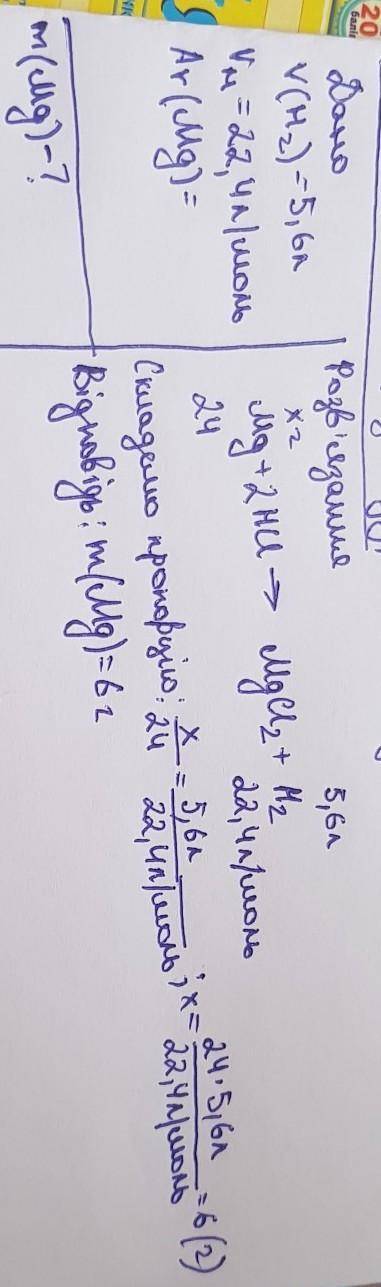 20
балів
Дано
V(H₂)=5,6л
Vм=22,4л/моль
Ar(Mg)=
m(Mg)-?
Розв'язання
хг 5,6л
Mg+2HCl→ MgCl₂+ H₂
24 22,4л/моль
Складемо пропорцію: x/24=5,6л/22,4л/моль; x=24·5,6л/22,4л/моль=6(г)
Відповідь: m(Mg)=6г